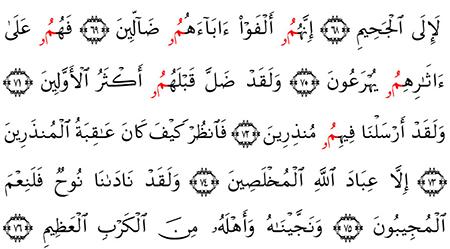 لَإِلَى ٱلْجَحِيمِ ۝٦٨ إِنَّهُمُۥ أَلْفَوْا۟ ءَابَآءَهُمُۥ ضَآلِّينَ ۝٦٩ فَهُمُۥ عَلَىٰ
ءَاثَٰرِهِمُۥ يُهْرَعُونَ ۝٧٠ وَلَقَدْ ضَلَّ قَبْلَهُمُۥ أَكْثَرُ ٱلْأَوَّلِينَ ۝٧١
وَلَقَدْ أَرْسَلْنَا فِيهِمُۥ مُنذِرِينَ ۝٧٢ فَٱنظُرْ كَيْفَ كَانَ عَٰقِبَةُ ٱلْمُنذَرِينَ
۝٧٣ إِلَّا عِبَادَ ٱللَّهِ ٱلْمُخْلَصِينَ ۝٧٤ وَلَقَدْ نَادَىٰنَا نُوحٌ فَلَنِعْمَ
ٱلْمُجِيبُونَ ۝٧٥ وَنَجَّيْنَٰهُ وَأَهْلَهُۥ مِنَ ٱلْكَرْبِ ٱلْعَظِيمِ ۝٧٦